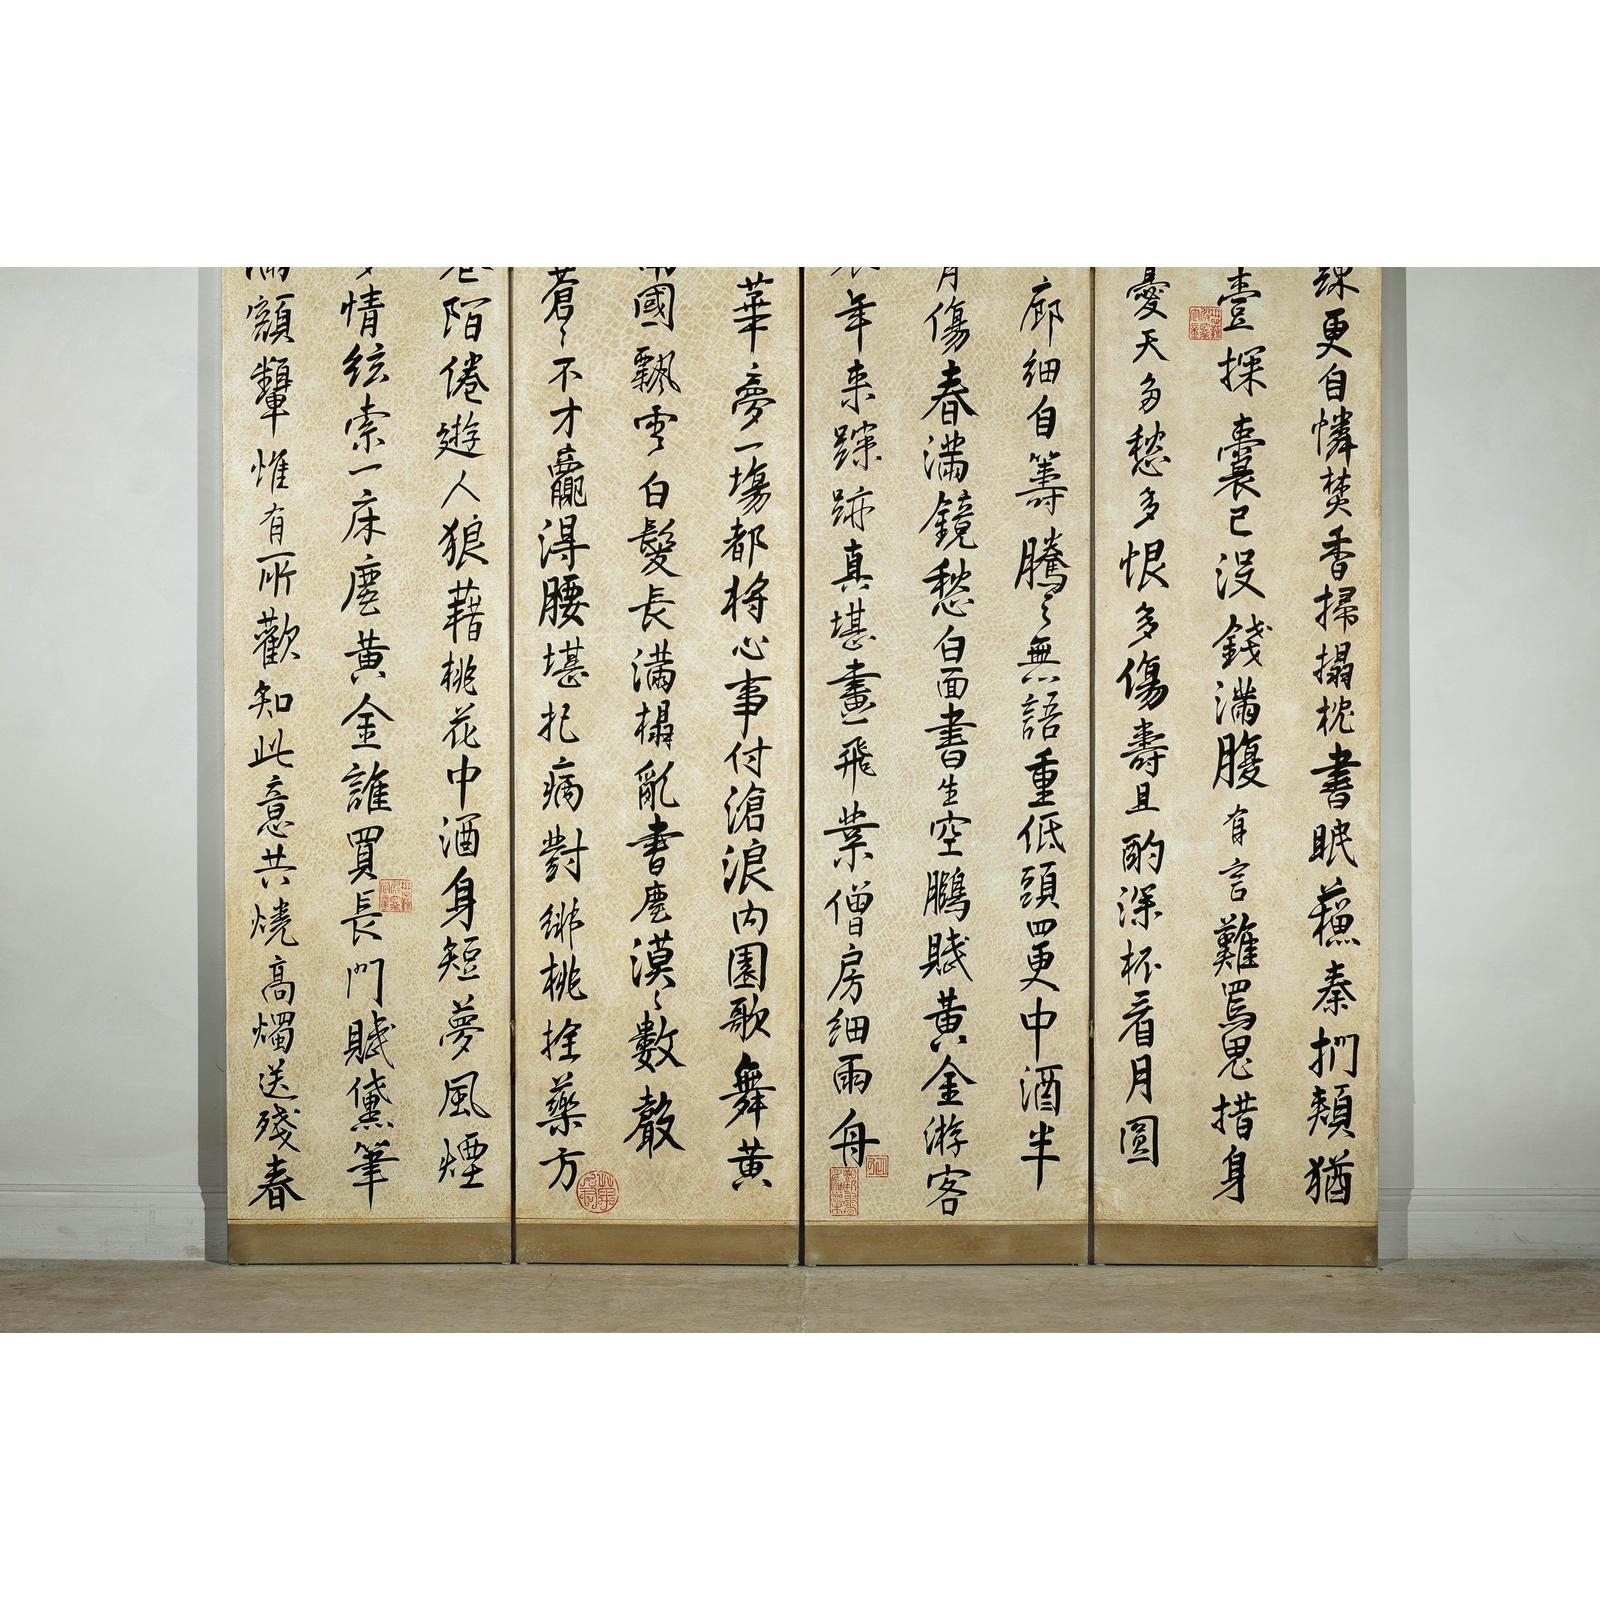 踈更自憐焚香掃榻枕書眠蘓秦捫頰猶
壹探囊已没錢滿腹有言難罵鬼措身
憂天多愁多恨多傷壽且酌深杯看月圓
廊細自籌騰〻無語重低頭四更中酒半
月傷春滿鏡愁白面書生空鵩賦黄金游客
年来踪跡真堪畫飛葉僧房細雨舟
華夢一塲都將心事付滄浪内園歌舞黄
國飄零白髮長滿榻亂書塵漠〻數聲
蒼〻不才贏得腰堪把病對緋桃拴藥方
陌倦遊人狼藉桃花中酒身短夢風煙
情絃索一床塵黄金誰買長門賦黛筆
額顰惟有所歡知此意共燒高燭送殘春